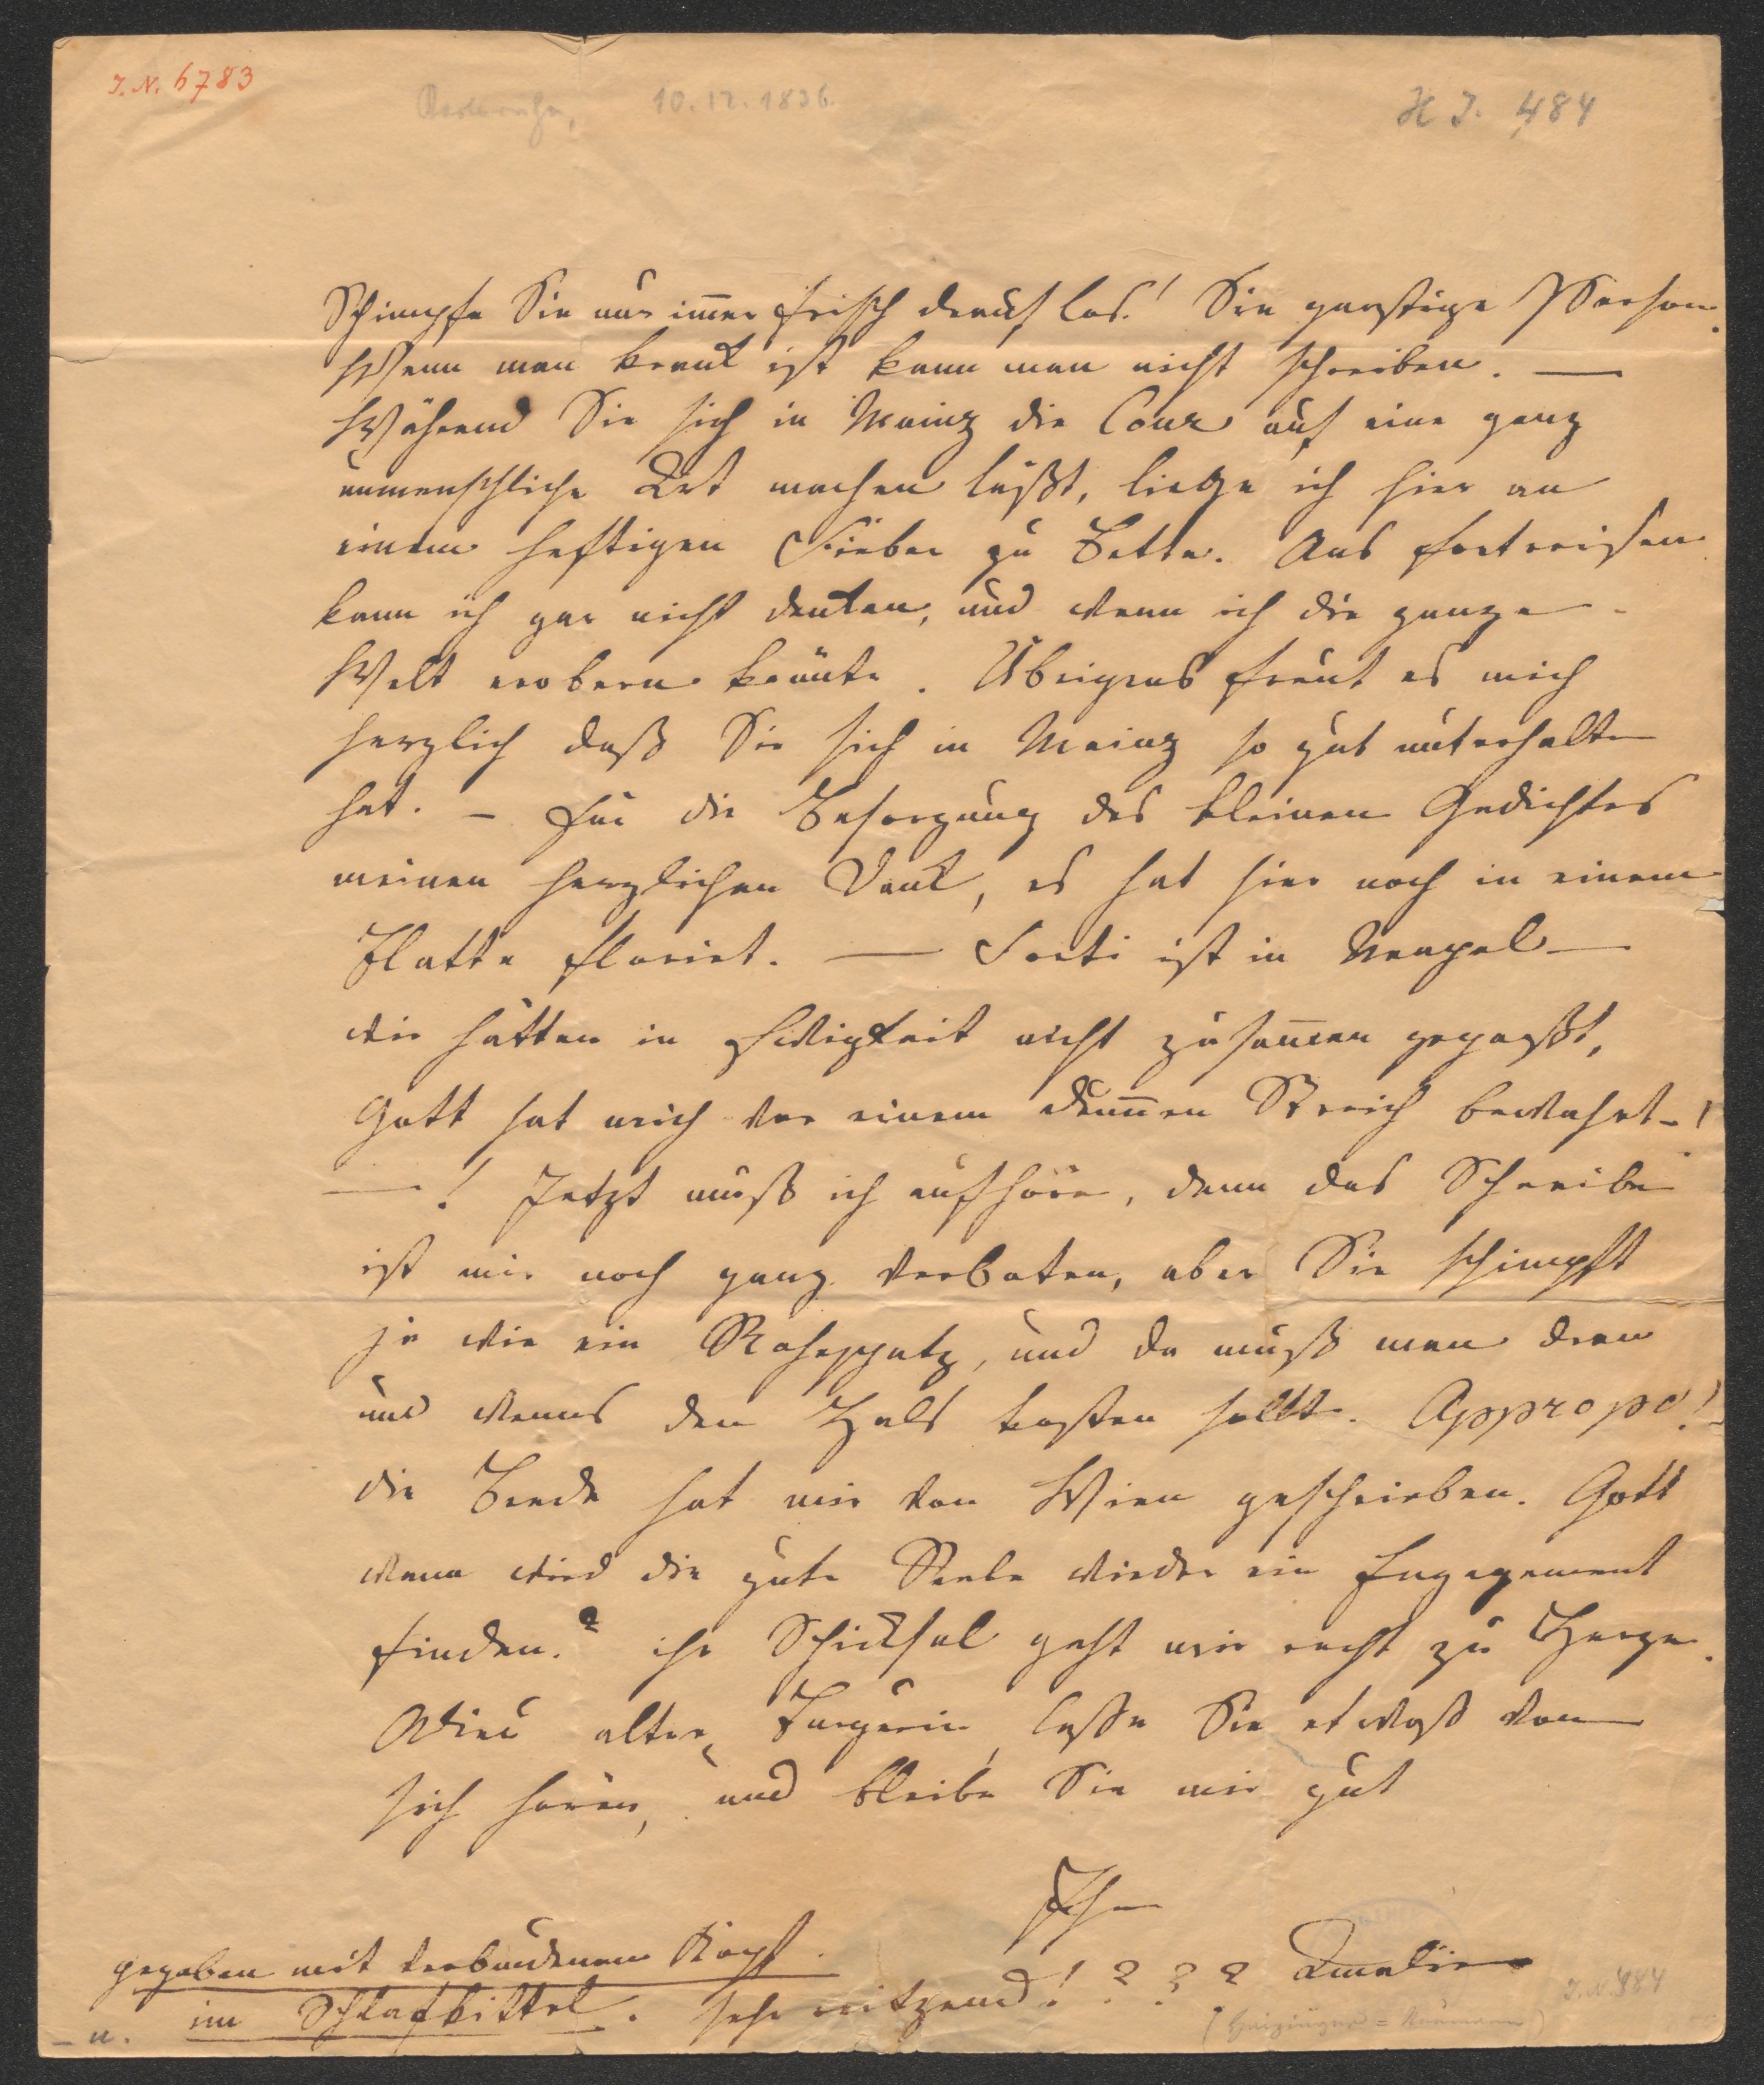 J. N. 6783
10.12.1836.
H J. 484
Schimpfe Sie nur im̅er frisch drauf los! Sie garstige Person.
Wenn man krank ist kann man nicht schreiben. —
Während Sie sich in Mainz die Cour auf eine ganz
unmenschliche Art machen läßt, liege ich hier an
einem heftigen Fieber zu Bette. Ans fortreisen
kann ich gar nicht denken, und wenn ich die ganze
Welt erobern könnte. Übrigens freut es mich
herzlich daß Sie sich in Mainz so gut unterhalten
hat. – Für die Besorgung des kleinen Gedichtes
meinen herzlichen Dank, es hat hier noch in einem
Blatte floriert. — ist in Neapel —
wir hätten in Ewigkeit nicht zusam̅en gepaßt,
Gott hat mich vor einem dum̅en Streich bewahrt –!
—! Jetzt muß ich aufhören, denn das Schreiben
ist mir noch ganz verboten, aber Sie schimpft
ja wie ein Rohrspatz, und da muß man dran
und wenns den Hals kosten sollte. Appropo!
die hat mir von Wien geschrieben. Gott
wann wird die gute Seele wieder ein Engagement
finden? ihr Schicksal geht mir recht zu Herzen.
Adieu alter, lasse Sie etwaß von
sich hören, und bleibe Sie mir gut
Ihre
Amalie
gegeben mit verbundenem Kopf.
– u. im Schlafkittel. sehr reitzend! ? ? ?
J. N. 484
(Haizinger = Neumann)